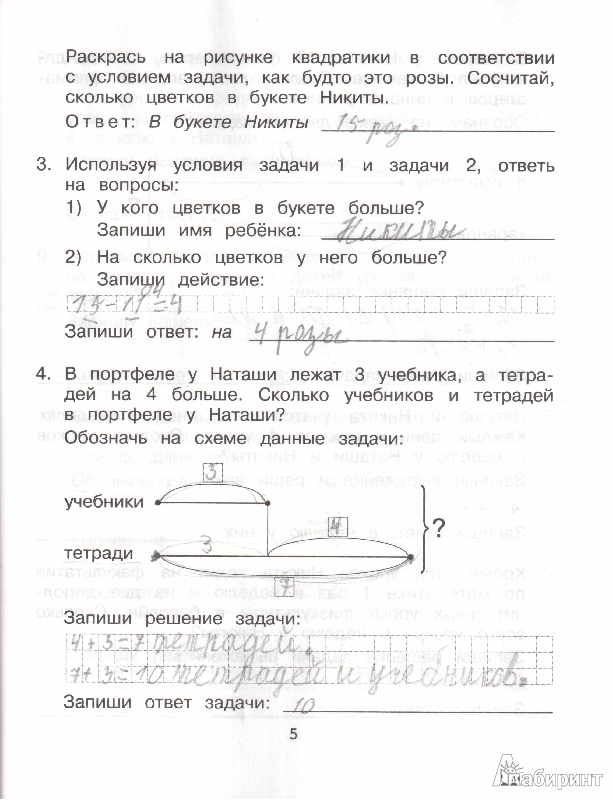 Раскрась на рисунке квадратики в соответствии
с условием задачи, как будто это розы. Сосчитай,
сколько цветков в букете Никиты.
Ответ: В букете Никиты 15 роз.
3. Используя условия задачи 1 и задачи 2, ответь
на вопросы:
1) У кого цветков в букете больше?
Запиши имя ребёнка: Никиты
2) На сколько цветков у него больше?
Запиши действие:
15-11=4
Запиши ответ: на 4 розы
4. В портфеле у Наташи лежат 3 учебника, а тетра-
дей на 4 больше. Сколько учебников и тетрадей
в портфеле у Наташи?
Обозначь на схеме данные задачи:
3
учебники
3 4 ?
тетради
7
Запиши решение задачи:
4+3=7 тетрадей.
7+3=10 тетрадей и учебников.
Запиши ответ задачи: 10
5
Лабиринт